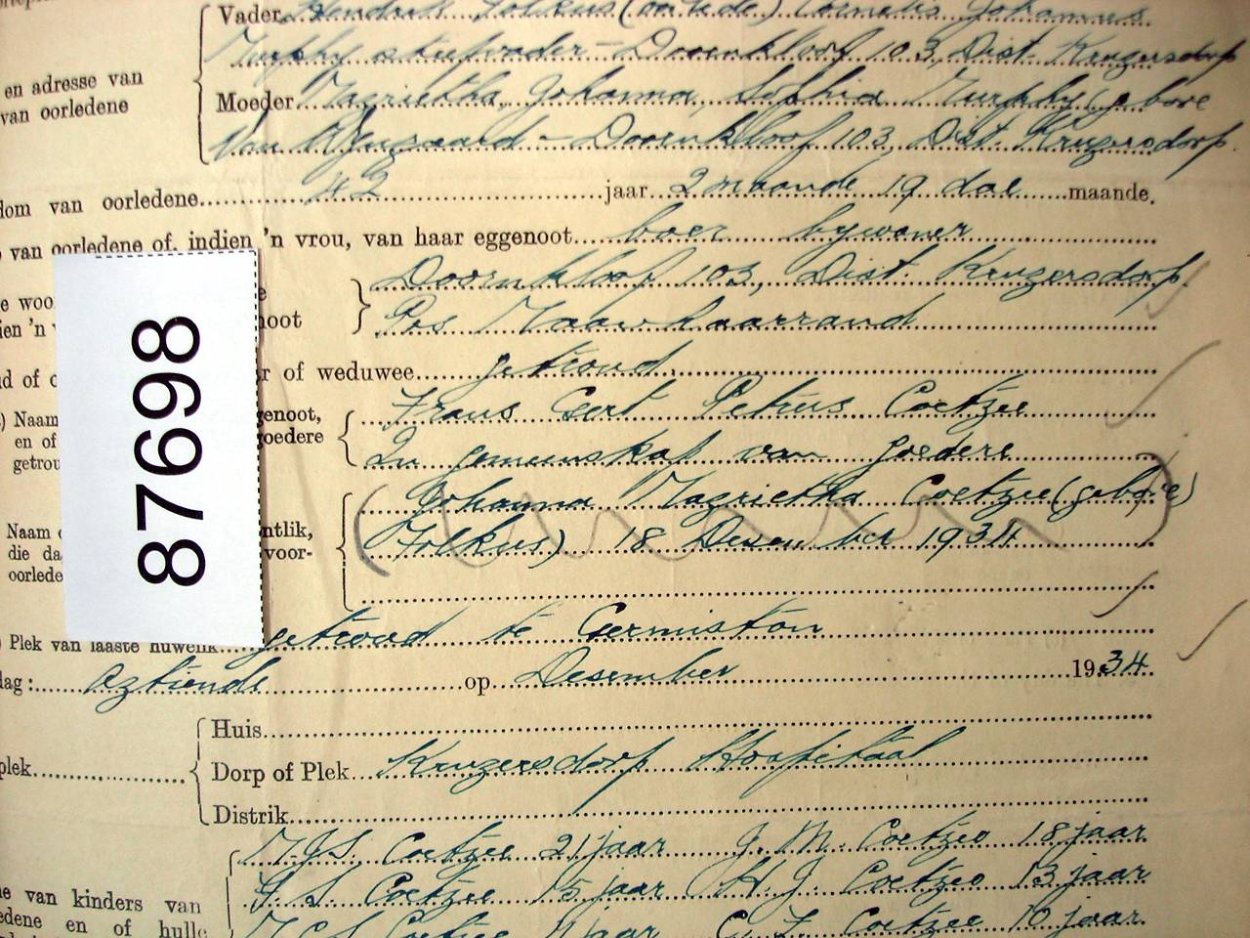 Vader Hendrik Folkus (oorlede) Cornelis Johannes
Murphy stiefvader - Doornkloof 103, Dist. Krugersdorp
en adresse van
van oorledene
Moeder Magrietha Johanna Sophia Murphy (gebore
Van Wyngaard - Doornkloof 103, Dist. Krugersdorp.
dom van oorledene 42 jaar 2 maande 19 dae maande.
van oorledene of, indien 'n vrou, van haar eggenoot boer bywoner
Doornkloof 103, Dist. Krugersdorp.
e woo
ien 'n noot Pos Maanhaarrand
r of weduwee getroud.
Naam genoot, Frans Gert Petrus Coetzee
en of goedere In gemeenskap van goedere
getrou
Johanna Magrietha Coetzee (gebore)
Naam ntlik, Folkus) 18 Desember 1934
die da voor-
oorlede
87698
Plek van laaste huwelik getroud te Germiston
dag: agtiende op Desember 1934.
Huis
plek Dorp of Plek Krugersdorp Hospitaal
Distrik
M.J.S. Coetzee 21 jaar J. M. Coetzee 18 jaar
e van kinders van G. S. Coetzee 15 jaar H. J. Coetzee 13 jaar
edene en of hulle Coetzee 11 jaar C. F. Coetzee 10 jaar